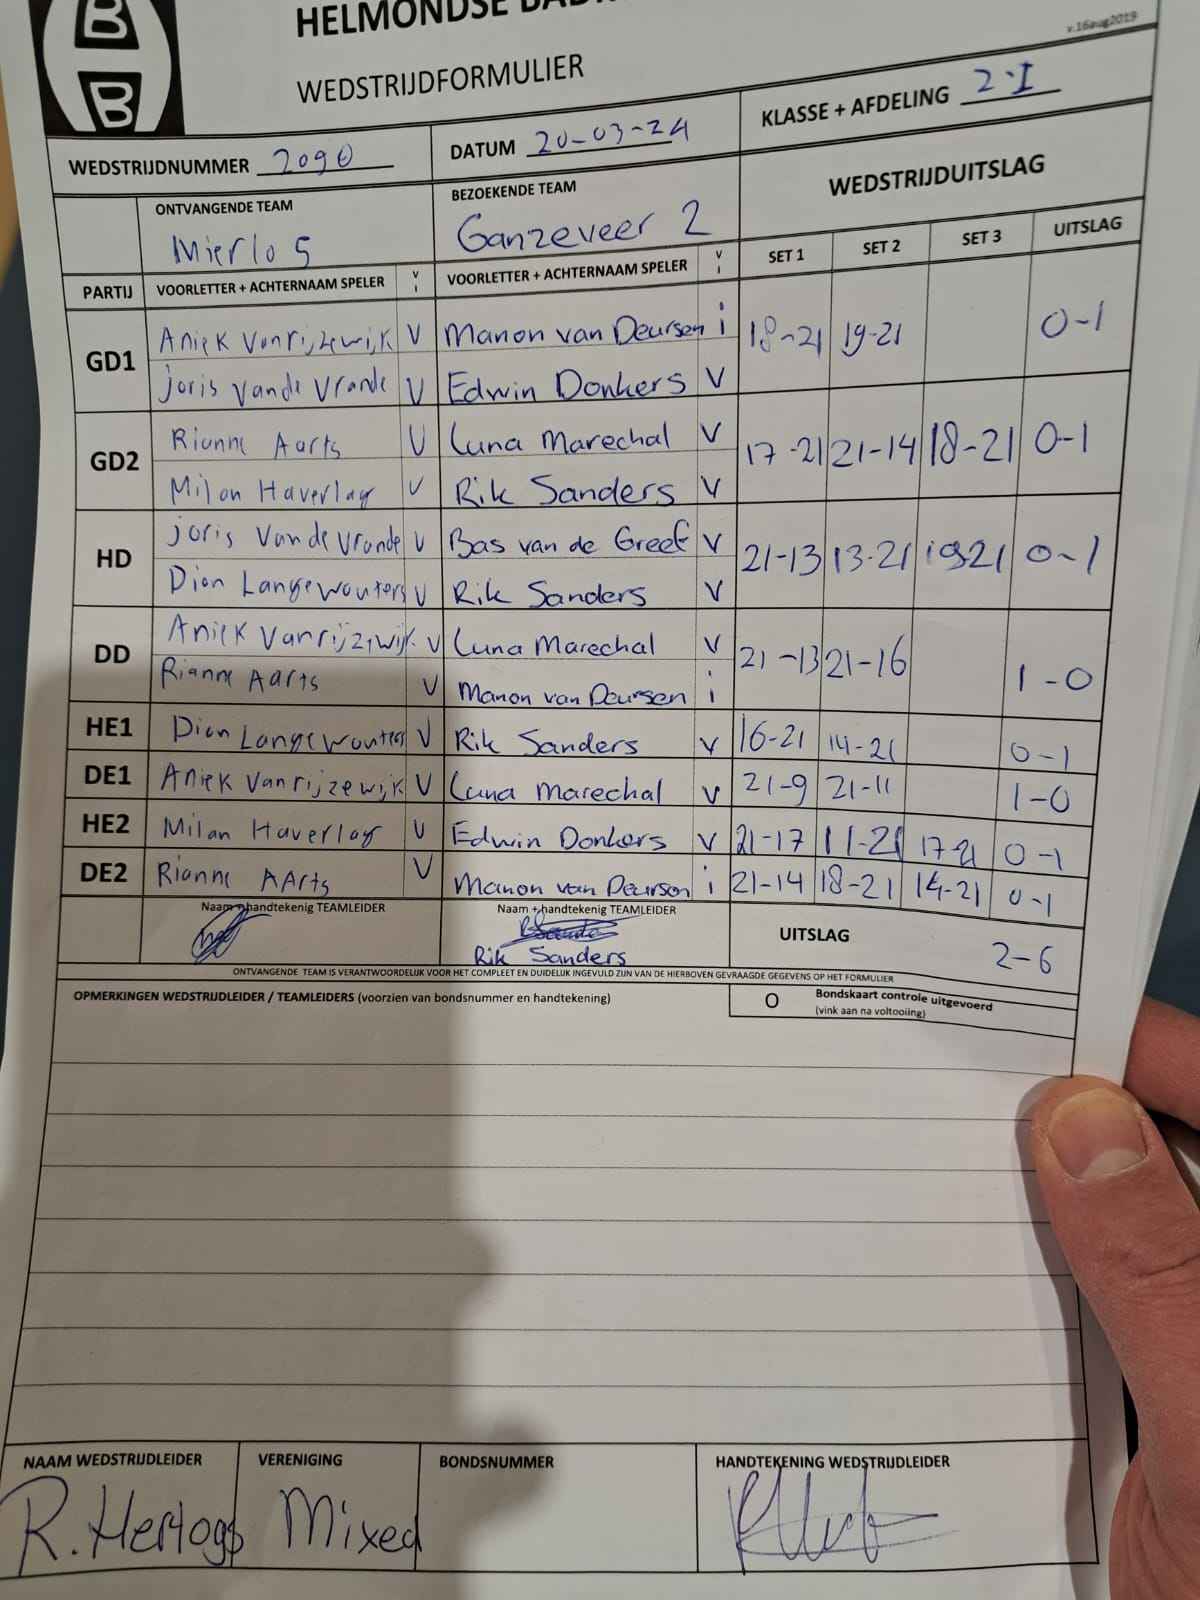 B
B
HELMONDSE
WEDSTRIJDFORMULIER
v.16aug2019
WEDSTRIJDNUMMER 2090 DATUM 20-03-24 KLASSE + AFDELING 2-I
ONTVANGENDE TEAM BEZOEKENDE TEAM WEDSTRIJDUITSLAG
Mierlo 5 Ganzeveer 2
PARTIJ VOORLETTER + ACHTERNAAM SPELER V I VOORLETTER + ACHTERNAAM SPELER V I SET 1 SET 2 SET 3 UITSLAG
GD1 Aniek Vanrijzewijk V Manon van Deursen i 18-21 19-21 0-1
Joris Vande Vrande V Edwin Donkers V
GD2 Rianne Aarts V Luna Marechal V 17-21 21-14 18-21 0-1
Milan Haverlag V Rik Sanders V
HD Joris Vande Vrande V Bas van de Greef V 21-13 13-21 19-21 0-1
Dion Langewouters V Rik Sanders V
DD Aniek Vanrijzewijk V Luna Marechal V 21-13 21-16 1-0
Rianne Aarts V Manon van Deursen i
HE1 Dion Langewouters V Rik Sanders V 16-21 14-21 0-1
DE1 Aniek Vanrijzewijk V Luna Marechal V 21-9 21-11 1-0
HE2 Milan Haverlag V Edwin Donkers V 21-17 11-21 17-21 0-1
DE2 Rianne AArts V Manon van Deursen i 21-14 18-21 14-21 0-1
Naam + handtekenig TEAMLEIDER Naam + handtekenig TEAMLEIDER UITSLAG 2-6
Rik Sanders
ONTVANGENDE TEAM IS VERANTWOORDELIJK VOOR HET COMPLEET EN DUIDELIJK INGEVULD ZIJN VAN DE HIERBOVEN GEVRAAGDE GEGEVENS OP HET FORMULIER
OPMERKINGEN WEDSTRIJDLEIDER / TEAMLEIDERS (voorzien van bondsnummer en handtekening) O Bondskaart controle uitgevoerd
(vink aan na voltooiing)
NAAM WEDSTRIJDLEIDER VERENIGING BONDSNUMMER HANDTEKENING WEDSTRIJDLEIDER
R. Hertogs Mixed